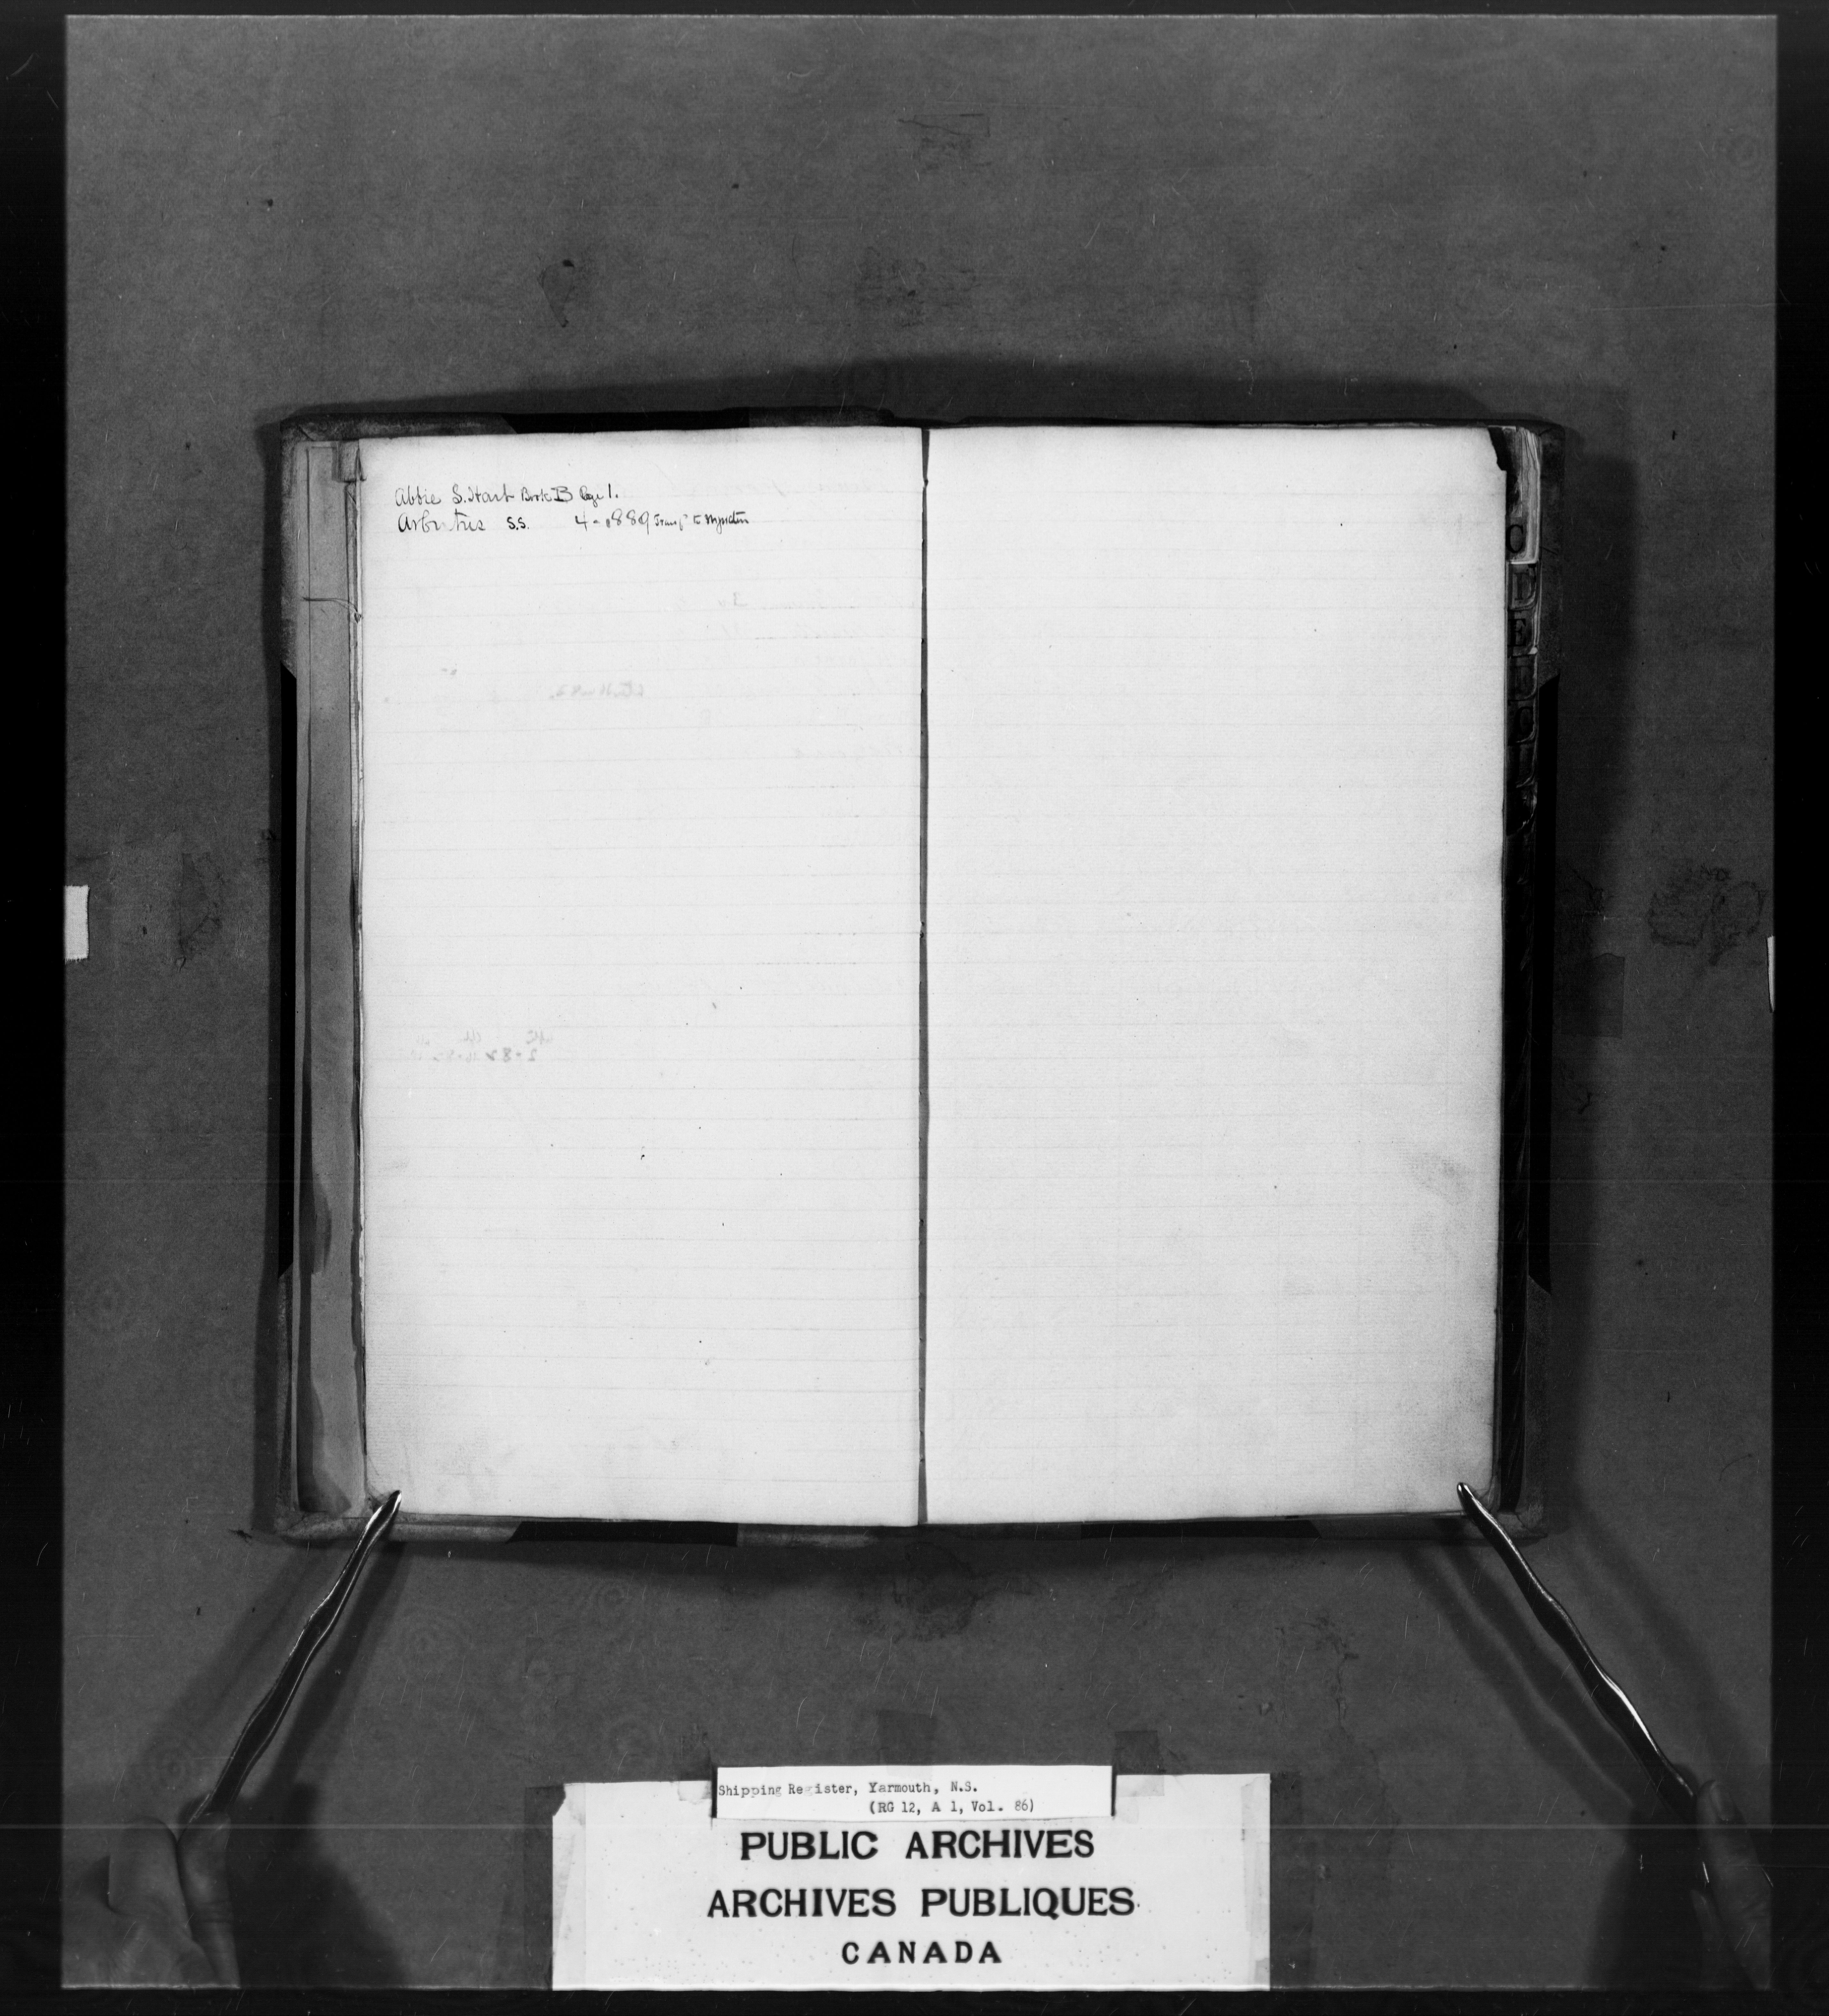 Abbie S. Hart Book B Page 1.
Arbutus S.S. 4-1889 Transf to
C
D
E
Shipping Register, Yarmouth, N.S.
(RG 12, A 1, Vol. 86)
PUBLIC ARCHIVES
ARCHIVES PUBLIQUES
CANADA